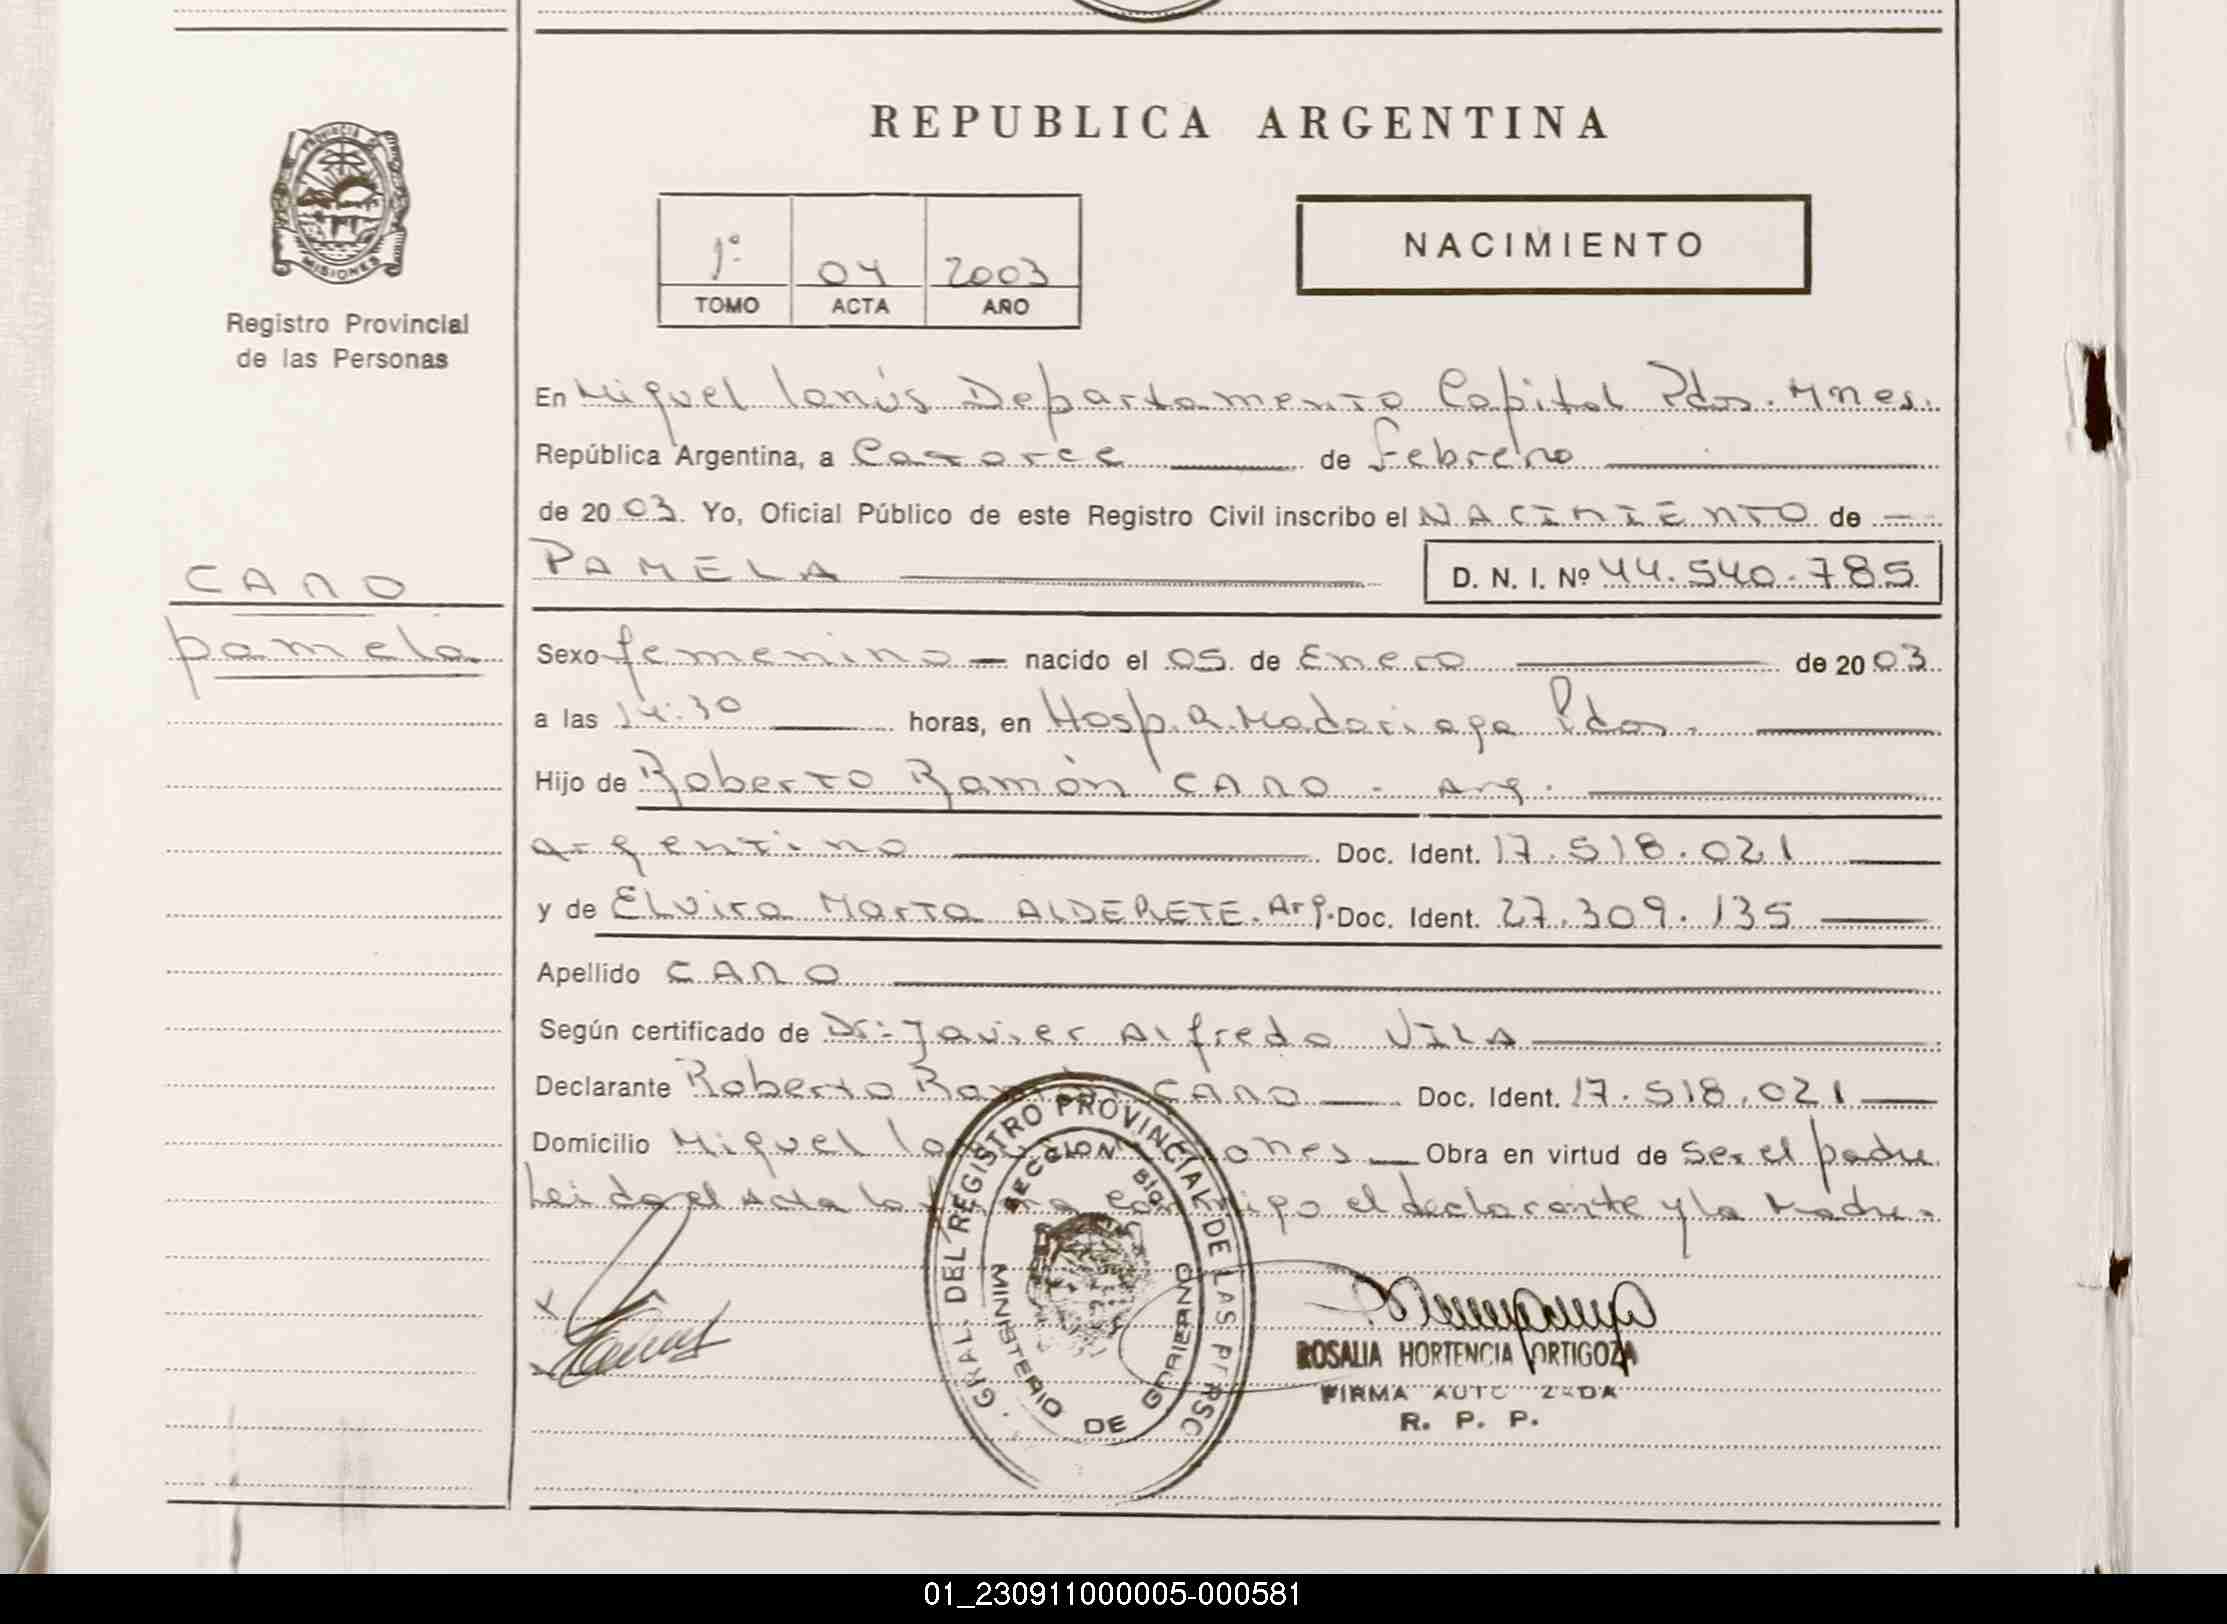 PROVINCIA DE
MISIONES
Registro Provincial
de las Personas
CANO
Pamela
REPUBLICA ARGENTINA
1º 04 2003
TOMO ACTA AÑO
NACIMIENTO
En Miguel Lanús Departamento Capital Pdas. Mnes.
República Argentina, a Catorce de Febrero
de 2003. Yo, Oficial Público de este Registro Civil inscribo el NACIMIENTO de
PAMELA D. N. I. Nº 44.540.785
Sexo femenino nacido el 05 de Enero de 2003
a las 14:30 horas, en Hosp. R. Madariaga Pdas.
Hijo de Roberto Ramón CANO - Arg.
argentino Doc. Ident. 17.518.021
y de Elvira Marta ALDERETE. Arg. Doc. Ident. 27.309.135
Apellido CANO
Según certificado de Dr: Javier Alfredo VILA
Declarante Roberto Ramón CANO Doc. Ident. 17.518.021
Domicilio Miguel Obra en virtud de ser el padre
Leida el Acta la conmigo el declarante y la Madre.
GRAL. DEL REGISTRO PROVINCIAL DE LAS PERSO
SECCION
MINISTERIO DE GOBIERNO
ROSALIA HORTENCIA ORTIGOZA
FIRMA AUTO ZADA
R. P. P.
01_230911000005-000581